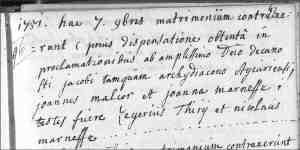 1781. hac 7. 7bris matrimonium contraxe
=runt (prius dispensatione obtentâ in
proclamationibus ab amplissimo Dno decano
Sti jacobi tamquam archidiacono
joannes malcor et joanna marneffe,
testes fuere Legerius Thiry et nicolaus
marneffe
matrimonium contraxerunt